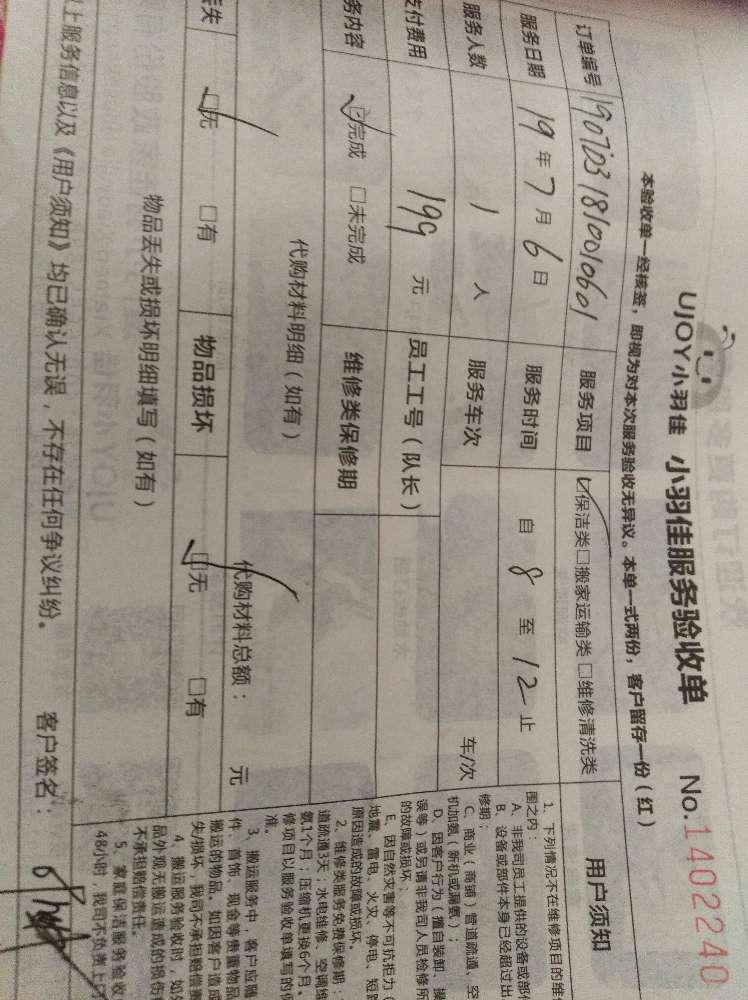 UJOY小羽佳 小羽佳服务验收单 No.1402240
本验收单一经核签，即视为对本次服务验收无异议。本单一式两份，客户留存一份（红）
订单编号 服务项目 ☑保洁类□搬家运输类 □维修清洗类
服务日期 19年7月6日 服务时间 自 8 至 12 止
服务人数 1 人 服务车次 车/次
支付费用 199 元 员工工号（队长）
务内容 ☑完成 □未完成 维修类保修期
代购材料明细（如有） 代购材料总额： 元
丢失 ☑无 □有 物品损坏 ☑无 □有
物品丢失或损坏明细填写（如有）
上服务信息以及《用户须知》均已确认无误，不存在任何争议纠纷。 客户签名：
用户须知
1、下列情况不在维修项目的维
围之内：
A、非我司员工提供的设备或部件
B、设备或部件本身已经超过出
修期；
C、商业（商铺）管道疏通、空
机加氨（新机或漏氨）；
D、因客户行为（擅自装卸、操
误等）或另请非我司人员检修所
的故障或损坏；
E、因自然灾害等不可抗拒力（
地震、雷电、火灾、停电、短路
原因造成的故障或损坏。
2、维修类服务免费保修期：
道疏通3天；水电维修、空调维
氨1个月；压缩机更换6个月。
修项目以服务验收单填写的保
准。
3、搬运服务中，客户应随
件、首饰、现金等贵重物品
搬运的物品。如因客户造成
失/损坏，我司不承担赔偿责
4、搬运服务验收时，如外
品外观无搬运造成的损伤
不承担赔偿责任。
5、家庭保洁服务验收
48小时，我司不负责上